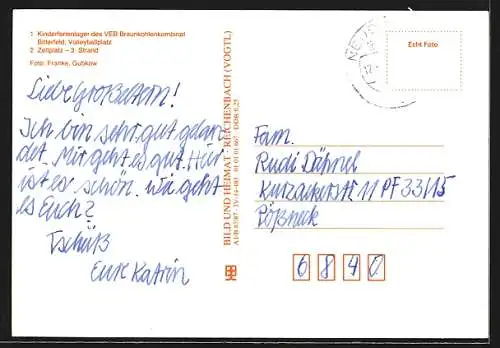 1 Kinderferienlager des VEB Braunkohlenkombinat
Bitterfeld, Volleyballplatz
2 Zeltplatz – 3 Strand
Foto: Franke, Gubkow
Liebe Großeltern!
Ich bin sehr gut gelan
det. Mir geht es gut. Hier
ist es schön. Wie geht
es Euch?
Tschüß
Eure Katrin
BILD UND HEIMAT · REICHENBACH (VOGTL)
Echt Foto
Fam.
Rudi Dähnel
PF 33/15
Pößneck
6840